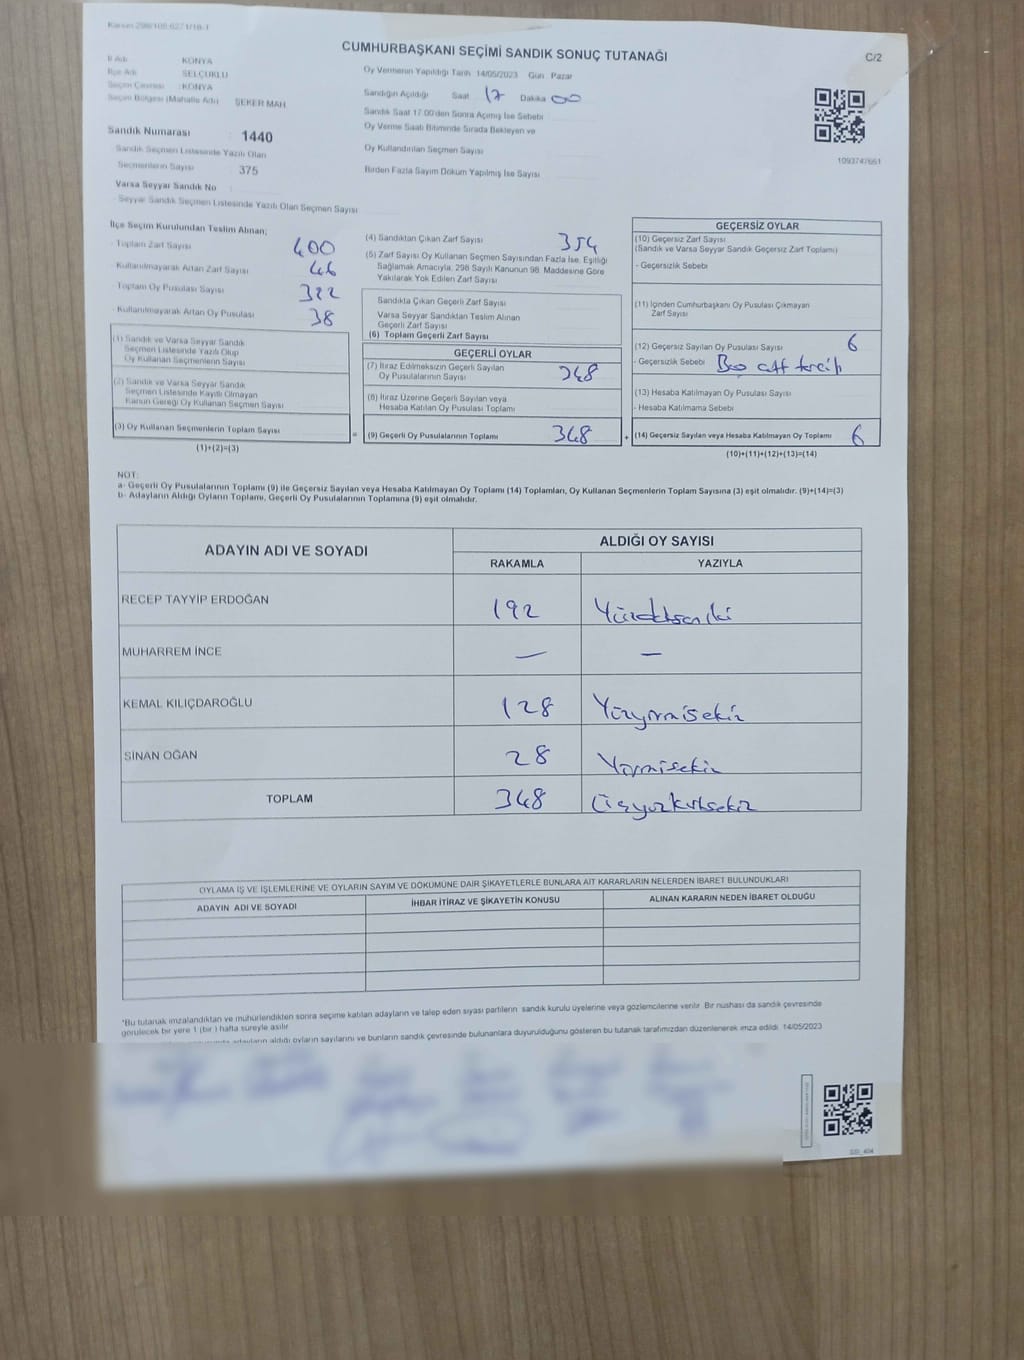 CUMHURBAŞKANI SEÇİMİ SANDIK SONUÇ TUTANAĞI
C/2
İl Adı KONYA
İlçe Adı SELÇUKLU
Seçim Çevresi : KONYA
Seçim Bölgesi (Mahalle Adı) ŞEKER MAH
Oy Vermenin Yapıldığı Tarih 14/05/2023 Gün Pazar
Sandığın Açıldığı Saat 17 Dakika 00
Sandık Saat 17.00'den Sonra Açılmış İse Sebebi
Oy Verme Saati Bitiminde Sırada Bekleyen ve
Oy Kullandırılan Seçmen Sayısı
Birden Fazla Sayım Döküm Yapılmış İse Sayısı
1093747661
Sandık Numarası : 1440
Sandık Seçmen Listesinde Yazılı Olan
Seçmenlerin Sayısı 375
Varsa Seyyar Sandık No
Seyyar Sandık Seçmen Listesinde Yazılı Olan Seçmen Sayısı
İlçe Seçim Kurulundan Teslim Alınan;
- Toplam Zarf Sayısı 400
- Kullanılmayarak Artan Zarf Sayısı 46
- Toplam Oy Pusulası Sayısı
- Kullanılmayarak Artan Oy Pusulası 38
(1) Sandık ve Varsa Seyyar Sandık
Seçmen Listesinde Yazılı Olup
Oy Kullanan Seçmenlerin Sayısı
(2) Sandık ve Varsa Seyyar Sandık
Seçmen Listesinde Kayıtlı Olmayan
Kanun Gereği Oy Kullanan Seçmen Sayısı
(3) Oy Kullanan Seçmenlerin Toplam Sayısı
(1)+(2)=(3)
=
(4) Sandıktan Çıkan Zarf Sayısı 354
(5) Zarf Sayısı Oy Kullanan Seçmen Sayısından Fazla İse, Eşitliği
Sağlamak Amacıyla, 298 Sayılı Kanunun 98. Maddesine Göre
Yakılarak Yok Edilen Zarf Sayısı
Sandıkta Çıkan Geçerli Zarf Sayısı
Varsa Seyyar Sandıktan Teslim Alınan
Geçerli Zarf Sayısı
(6) Toplam Geçerli Zarf Sayısı
GEÇERLİ OYLAR
(7) İtiraz Edilmeksizin Geçerli Sayılan
Oy Pusulalarının Sayısı 348
(8) İtiraz Üzerine Geçerli Sayılan veya
Hesaba Katılan Oy Pusulası Toplamı
(9) Geçerli Oy Pusulalarının Toplamı 348
+
GEÇERSİZ OYLAR
(10) Geçersiz Zarf Sayısı
(Sandık ve Varsa Seyyar Sandık Geçersiz Zarf Toplamı)
- Geçersizlik Sebebi
(11) İçinden Cumhurbaşkanı Oy Pusulası Çıkmayan
Zarf Sayısı
(12) Geçersiz Sayılan Oy Pusulası Sayısı 6
- Geçersizlik Sebebi tercih
(13) Hesaba Katılmayan Oy Pusulası Sayısı
- Hesaba Katılmama Sebebi
(14) Geçersiz Sayılan veya Hesaba Katılmayan Oy Toplamı 6
(10)+(11)+(12)+(13)=(14)
NOT:
a- Geçerli Oy Pusulalarının Toplamı (9) ile Geçersiz Sayılan veya Hesaba Katılmayan Oy Toplamı (14) Toplamları, Oy Kullanan Seçmenlerin Toplam Sayısına (3) eşit olmalıdır. (9)+(14)=(3)
b- Adayların Aldığı Oyların Toplamı, Geçerli Oy Pusulalarının Toplamına (9) eşit olmalıdır.
ADAYIN ADI VE SOYADI
ALDIĞI OY SAYISI
RAKAMLA YAZIYLA
RECEP TAYYİP ERDOĞAN 192
MUHARREM İNCE — —
KEMAL KILIÇDAROĞLU 128 Yüzyirmisekiz
SİNAN OĞAN 28 Yirmisekiz
TOPLAM 348 Üçyüzkırksekiz
OYLAMA İŞ VE İŞLEMLERİNE VE OYLARIN SAYIM VE DÖKÜMÜNE DAİR ŞİKAYETLERLE BUNLARA AİT KARARLARIN NELERDEN İBARET BULUNDUKLARI
ADAYIN ADI VE SOYADI İHBAR İTİRAZ VE ŞİKAYETİN KONUSU ALINAN KARARIN NEDEN İBARET OLDUĞU
*Bu tutanak imzalandıktan ve mühürlendikten sonra seçime katılan adayların ve talep eden siyasi partilerin sandık kurulu üyelerine veya gözlemcilerine verilir. Bir nüshası da sandık çevresinde
görülecek bir yere 1 (bir) hafta süreyle asılır
aldığı oyların sayılarını ve bunların sandık çevresinde bulunanlara duyurulduğunu gösteren bu tutanak tarafımızdan düzenlenerek imza edildi. 14/05/2023